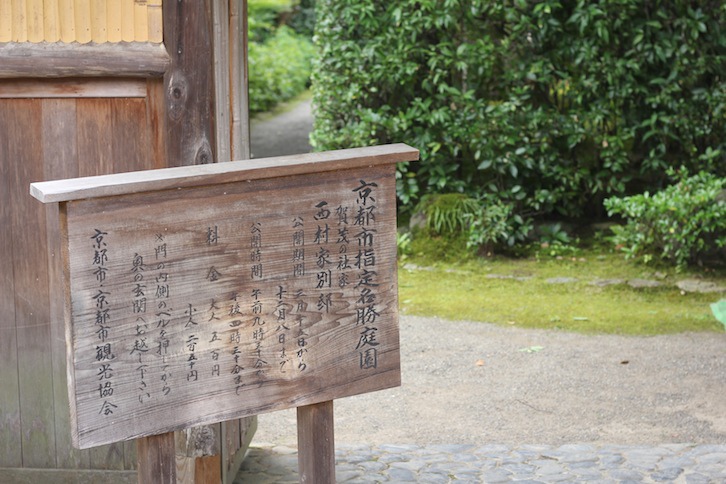 京都市指定名勝庭園
賀茂の社家
西村家別邸
公開期間 三月十五日から
十二月八日まで
公開時間 午前九時三十分から
午後四時三十分まで
料金 大人 五百円
小人 二百五十円
※門の内側のベルを押してから
奥の玄関へお越し下さい
京都市・京都市観光協会